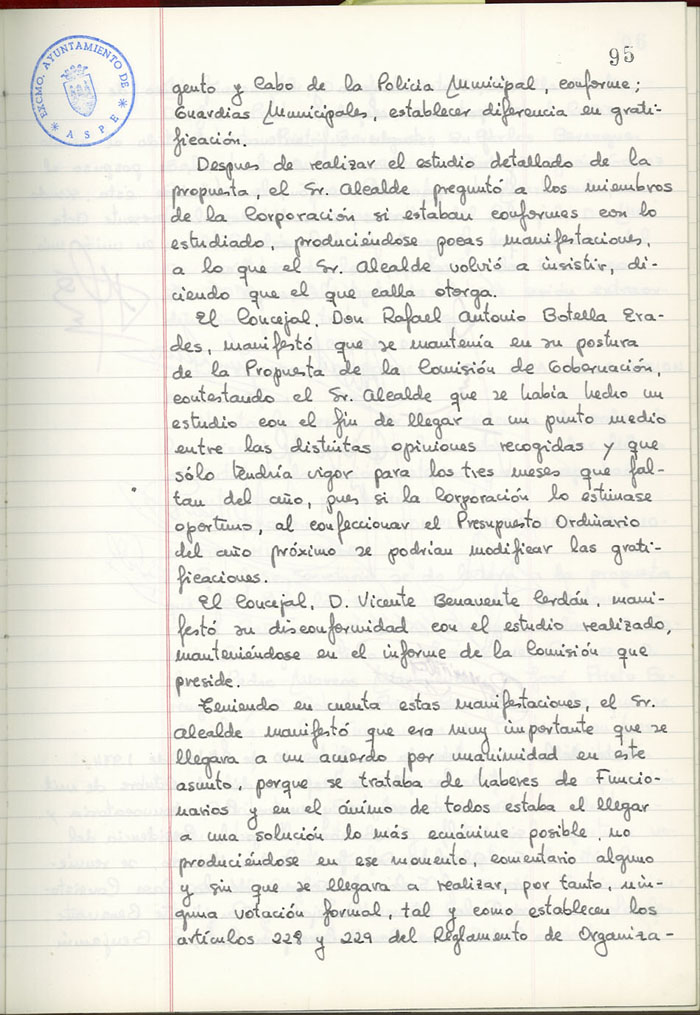 EXCMO. AYUNTAMIENTO DE
* ASPE *
95
gento y Cabo de la Policia Municipal, conforme;
Guardias Municipales, establecer diferencia en grati-
ficación.
Despues de realizar el estudio detallado de la
propuesta, el Sr. Alcalde preguntó a los miembros
de la Corporación si estaban conformes con lo
estudiado, produciéndose pocas manifestaciones,
a lo que el Sr. Alcalde volvió a insistir, di-
ciendo que el que calla otorga.
El Concejal, Don Rafael Antonio Botella Era-
des, manifestó que se mantenía en su postura
de la Propuesta de la Comisión de Gobernación,
contestando el Sr. Alcalde que se había hecho un
estudio con el fin de llegar a un punto medio
entre las distintas opiniones recogidas y que
sólo tendría vigor para los tres meses que fal-
tan del año, pues si la Corporación lo estimase
oportuno, al confeccionar el Presupuesto Ordinario
del año próximo se podrían modificar las grati-
ficaciones.
El Concejal, D. Vicente Benavente Cerdán, mani-
festó su disconformidad con el estudio realizado,
manteniéndose en el informe de la Comisión que
preside.
Teniendo en cuenta estas manifestaciones, el Sr.
Alcalde manifestó que era muy importante que se
llegara a un acuerdo por unanimidad en este
asunto, porque se trataba de haberes de Funcio-
narios y en el ánimo de todos estaba el llegar
a una solución lo más ecuánime posible, no
produciéndose en ese momento, comentario alguno
y sin que se llegara a realizar, por tanto, nin-
guna votación formal, tal y como establecen los
artículos 228 y 229 del Reglamento de Organiza-